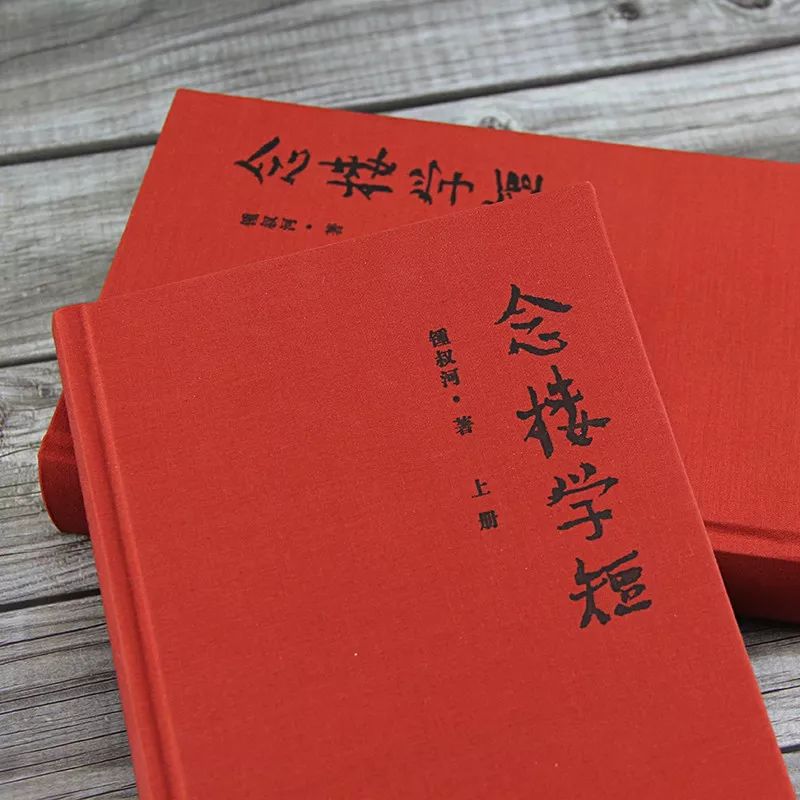 念楼学短
鍾叔河·著
念楼学短
鍾叔河·著
上册